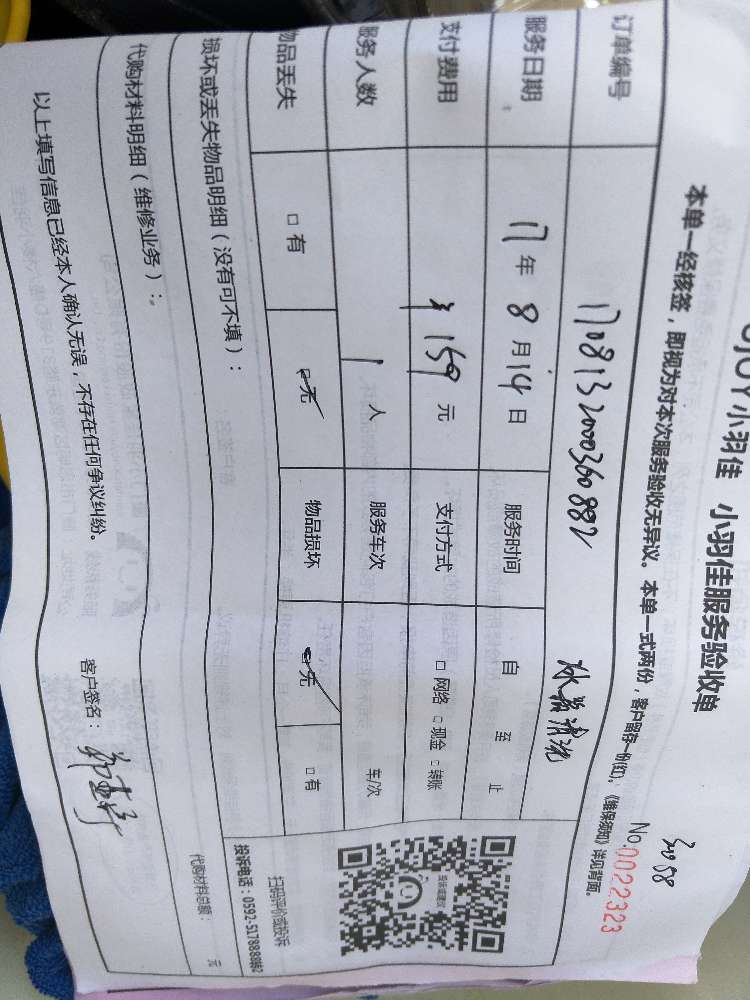 小羽佳 小羽佳服务验收单
30058
No.0022323
本单一经核签，即视为对本次服务验收无异议。本单一式两份，客户留存一份(红)，《维保须知》详见背面。
订单编号 170813200036088 2
服务日期 17年8月14日 服务时间 自 至 止
支付费用 ¥159元 支付方式 □网络 □现金 □转账
服务人数 1人 服务车次 车/次
物品丢失 □有 □无 物品损坏 □无 □有
扫码评价或投诉
投诉电话：0592-5178888转2
损坏或丢失物品明细（没有可不填）：
代购材料明细（维修业务）：
代购材料总额： 元
以上填写信息已经本人确认无误，不存在任何争议纠纷。 客户签名：